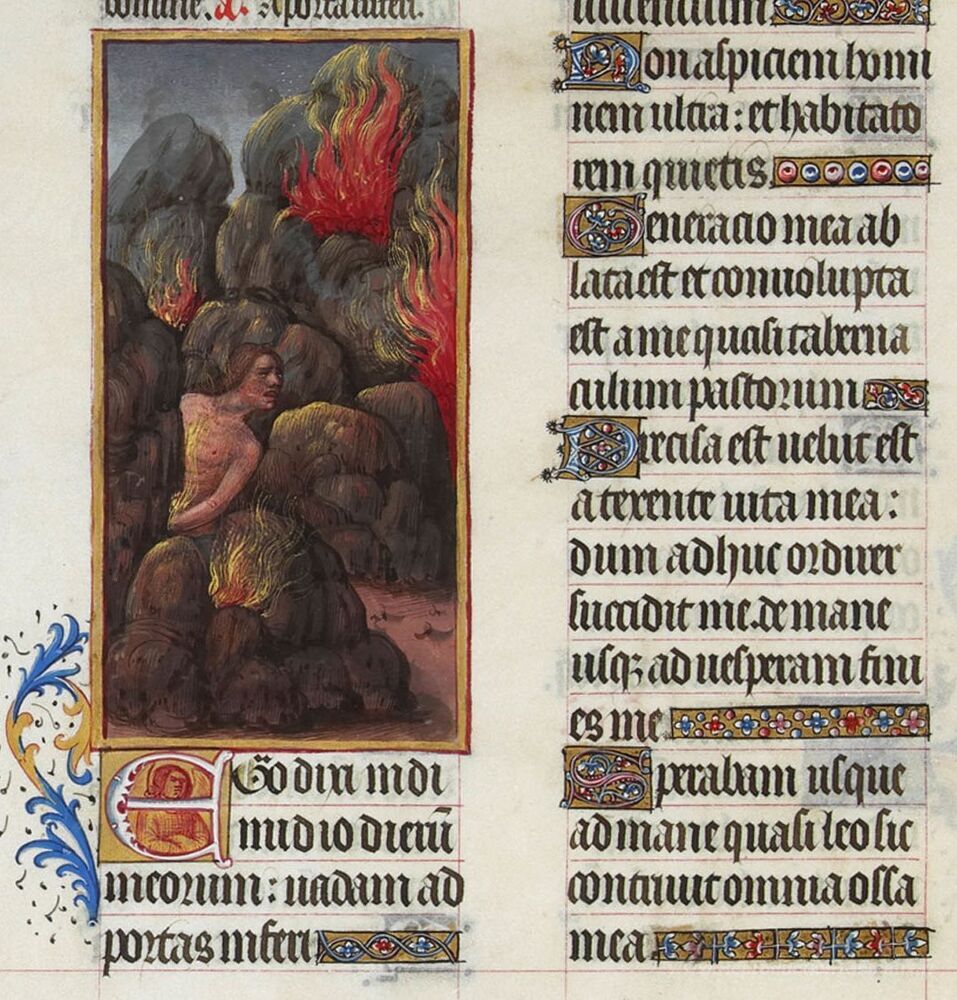 domine. a. A porta inferi.
EGo dixi in di
midio dierū
meorum: uadam ad
portas inferi
uiuencium.
Non aspiciem homi
nem ultra: et habitato
rem quietis.
Generacio mea ab
lata est et conuolupta
est a me quasi taberna
culum pastorum
Precisa est uelut est
a texente uita mea:
dum adhuc ordirer
succidit me. de mane
usqꝫ ad uesperam fini
es me.
Sperabam usque
ad mane quasi leo sic
contriuit omnia ossa
mea.